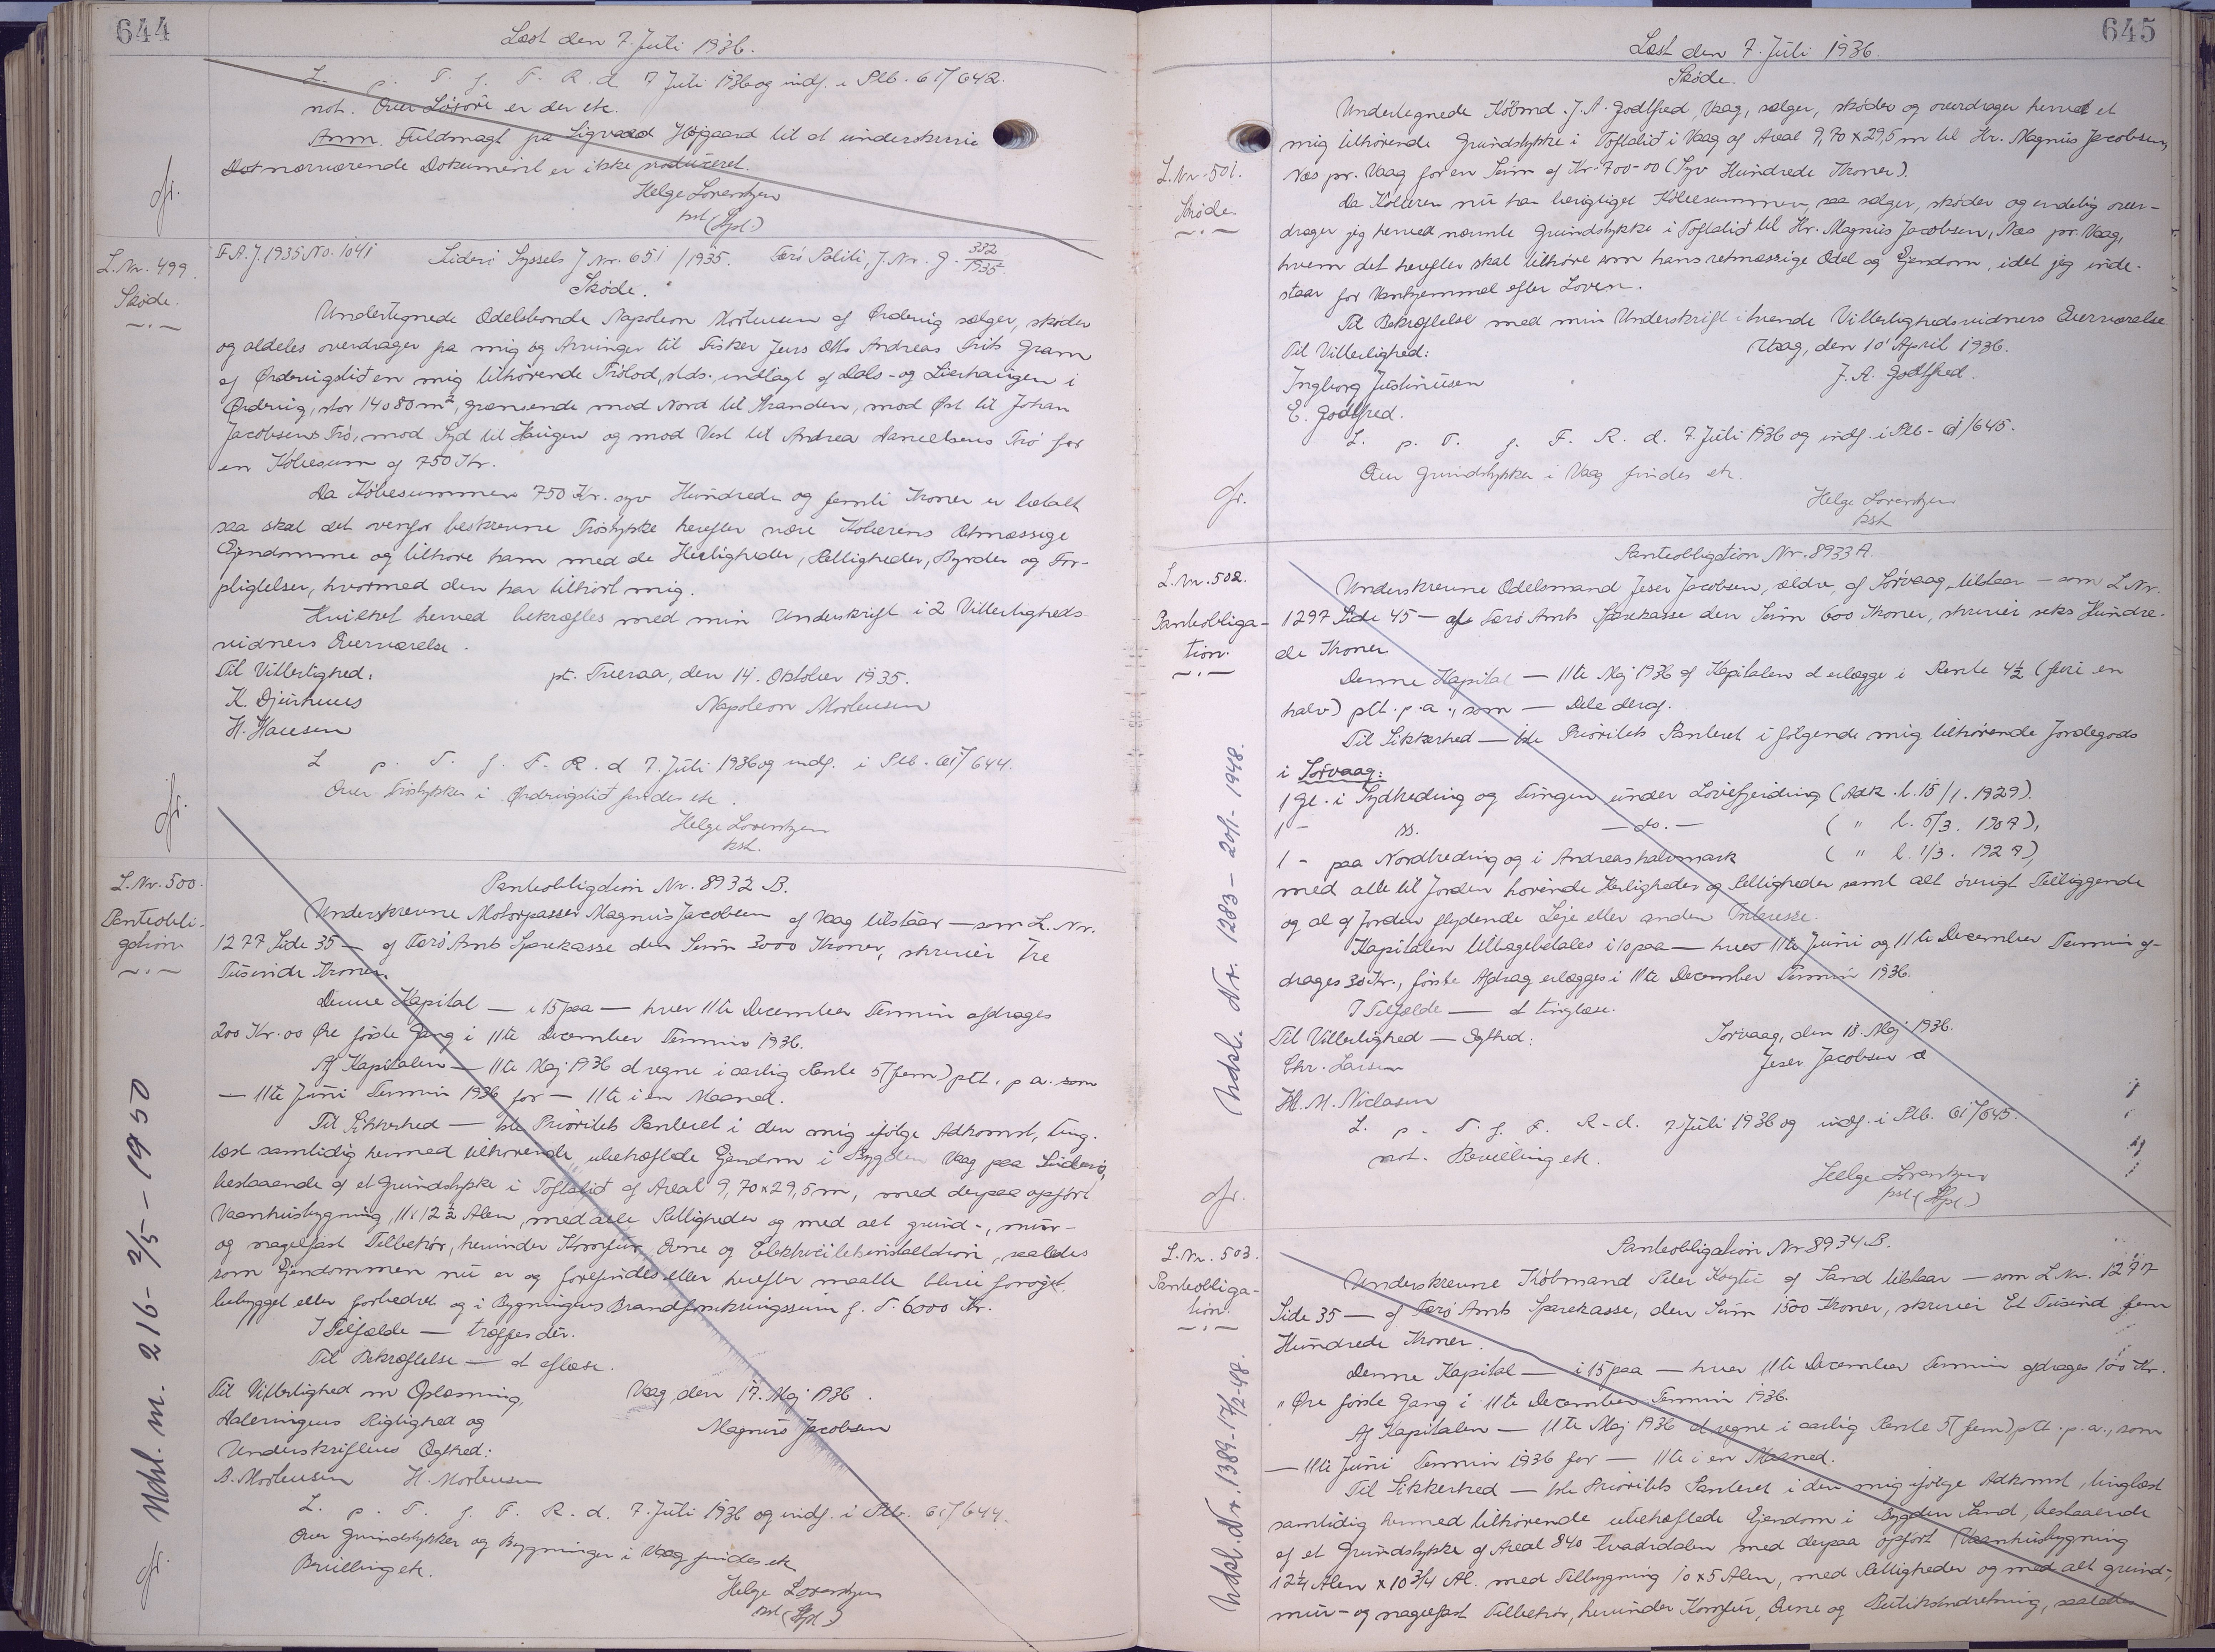 644
Læst den 7. Juli 1936.
L. p. T. f. F. R. d. 7 Juli 1936 og indf. i Ptb. 61/642.
not. Over Løsøre er der etc.
Anm. Fuldmagt fra Sigvald Højgaard til at underskrive
nærværende Dokument er ikke produceret.
Helge Lorentzen
kst (Spl.)
fr.
L. Nr. 499.
Skøde.
F. A. J. 1935 No. 1041 Suderø Syssels J Nr. 651/1935. Færø Politi, J. Nr. g. 332/1935.
Skøde.
Undertegnede Odelsbonde Napoleon Mortensen af Ørdevig sælger, skøder
og aldeles overdrager fra mig og Arvinger til Fisker Jens Otto Andreas Frits Gram
af Ørdevigslid en mig tilhørende Trølod, stds. indtagt af Dals- og Lierhaugen i
Ørdevig, stor 14080 m², grænsende mod Nord til Stranden, mod Øst til Johan
Jacobsens Trø, mod Syd til Haugen og mod Vest til Andrea Danielsens Trø for
en Købesum af 750 Kr.
Da Købesummen 750 Kr. syv Hundrede og femti Kroner er betalt
saa skal det ovenfor beskrevne Trøstykke herefter være Køberens Retmæssige
Ejendomme og tilhøre ham med de Herligheder, Rettigheder, Byrder og For-
pligtelser, hvormed den har tilhørt mig.
Hvilket herved bekræftes med min Underskrift i 2 Vitterligheds
vidners Overværelse.
Til Vitterlighed: pt. Tveraa, den 14. Oktober 1935.
K. Djurhuus Napoleon Mortensen
H. Hansen
L p. T. f. F. R. d 7. Juli 1936 og indf. i Ptb. 61/644.
Over Trøstykker i Ørdevigslid findes etc.
Helge Lorentzen
kst.
fr.
L. Nr. 500.
Panteobli-
gation
Panteobligation Nr. 8932 B.
Underskrevne Motorpasser Magnus Jacobsen af Vaag tilstaar — som L. Nr.
1277 Side 35 — af Færø Amts Sparekasse den Sum 3000 Kroner, skriver Tre
Tusinde Kroner.
Denne Kapital — i 15 paa — hver 11te December Termin afdrages
200 Kr. 00 Øre første Gang i 11te December Termin 1936.
Af Kapitalen — 11te Maj 1936 at regne i aarlig Rente 5 (fem) pCt. p a. som
— 11te Juni Termin 1936 for — 11te i en Maaned.
Til Sikkerhed — 1ste Prioritets Panteret i den mig ifølge Adkomst, ting-
læst samtidig hermed tilhørende, ubehæftede Ejendom i Bygden Vaag paa Suderø,
bestaaende af et Grundstykke i Toftalid af Areal 9,70 x 29,5 m, med derpaa opført
Vaanhusbygning, 11 x 12½ Alen, med alle Rettigheder og med alt grund-, mur-
og nagelfast Tilbehør, herunder Komfur, Ovne og Elektricitetsinstallation, saaledes
som Ejendommen nu er og forefindes eller herefter maatte blive forøget,
bebygget eller forbedret og i Bygningens Brandforsikringssum f. T. 6000 Kr.
I Tilfælde — træffes dèr.
Til Bekræftelse — at aflæse.
Til Vitterlighed om Oplæsning, Vaag, den 17. Maj 1936.
Dateringens Rigtighed og Magnus Jacobsen
Underskriftens Ægthed:
B. Mortensen H. Mortensen
L. p. T. f. F. R. d. 7. Juli 1936 og indf. i Ptb. 61/644.
Over Grundstykker og Bygninger i Vaag findes etc
Bevilling etc.
Helge Lorentzen
kst (Spl.)
fr. Udsl. m. 216 - 2/5 - 1950
645
Læst den 7. Juli 1936.
L. Nr. 501.
Skøde.
Skøde.
Undertegnede Købmd. J. A. Godtfred, Vaag, sælger, skøder og overdrager herved et
mig tilhørende Grundstykke i Toftalid i Vaag af Areal 9,70 x 29,5 m til Hr. Magnus Jacobsen,
Næs pr. Vaag for en Sum af Kr. 700-00 (Syv Hundrede Kroner).
Da Køberen nu har berigtiget Købesummen, saa sælger, skøder og endelig over-
drager jeg herved nævnte Grundstykke i Toftalid til Hr. Magnus Jacobsen, Næs pr. Vaag,
hvem det herefter skal tilhøre som hans retmæssige Odel og Ejendom, idet jeg inde-
staar for Vanhjemmel efter Loven.
Til Bekræftelse med min Underskrift i tvende Vitterlighedsvidners Overværelse
Til Vitterlighed: Vaag, den 10' April 1936.
Ingborg Justinussen J. A. Godtfred.
E. Godtfred.
L. p. T. f. F. R. d. 7. Juli 1936 og indf. i Ptb - 61/645.
Over Grundstykker i Vaag findes etc.
Helge Lorentzen
kst
fr.
L. Nr. 502.
Panteobliga-
tion.
Panteobligation Nr. 8933 A.
Underskrevne Odelsmand Jeser Jacobsen, ældre, af Sørvaag, tilstaar — som L. Nr.
1297 Side 45 — af Færø Amts Sparekasse den Sum 600 Kroner, skriver seks Hundre-
de Kroner
Denne Kapital — 11te Maj 1936 af Kapitalen at erlægge i Rente 4½ (fire en
halv) pCt. p. a., som — Dele deraf.
Til Sikkerhed — 1ste Prioritets Panteret i følgende mig tilhørende Jordegods
i Sørvaag:
1 Gl. i Sydheding og Tungen under Løvefjerding (Adk. l. 15/1. 1929).
1 - ss. — do. — ( " l. 5/3. 1907),
1 - paa Nordheding og i Andreashalvmark ( " l. 1/3. 1927),
med alle til Jorden hørende Herligheder og Rettigheder samt alt øvrigt Tilliggende
og al af Jorden flydende Leje eller anden Interesse.
Kapitalen tilbagebetales i 10 paa — hver 11te Juni og 11te December Termin af-
drages 30 Kr., første Afdrag erlægges i 11te December Termin 1936.
I Tilfælde — at tinglæse.
Til Vitterlighed — Ægthed: Sørvaag, den 18. Maj 1936.
Chr. Larsen Jeser Jacobsen æ
Hl. M. Niclasen
L. p. T. f. F. R. d. 7 Juli 1936 og indf. i Ptb. 61/645.
not. Bevilling etc.
Helge Lorentzen
kst (Spl.)
fr. Udsl. Nr. 1283 - 20/1 - 1948.
L. Nr. 503.
Panteobliga-
tion.
Panteobligation Nr. 8934 B.
Underskrevne Købmand Peter af Sand tilstaar — som L. Nr. 1277
Side 35 — af Færø Amts Sparekasse, den Sum 1500 Kroner, skriver Et Tusind fem
Hundrede Kroner.
Denne Kapital — i 15 paa — hver 11te December Termin afdrages 100 Kr.
" Øre første Gang i 11te December Termin 1936.
Af Kapitalen — 11te Maj 1936 at regne i aarlig Rente 5 (fem) pCt. p. a., som
— 11te Juni Termin 1936 for — 11te i en Maaned.
Til Sikkerhed — 1ste Prioritets Panteret i den mig ifølge Adkomst, tinglæst
samtidig hermed tilhørende ubehæftede Ejendom i Bygden Sand, bestaaende
af et Grundstykke af Areal 840 Kvadratalen med derpaa opført Vaanhusbygning
12¼ Alen x 10 3/4 Al. med Tilbygning 10 x 5 Alen, med Rettigheder og med alt grund-,
mur- og nagelfast Tilbehør, herunder Komfur, Ovne og Butiksindretning, saaledes
Udsl. Nr. 1389 - 17/2-48.